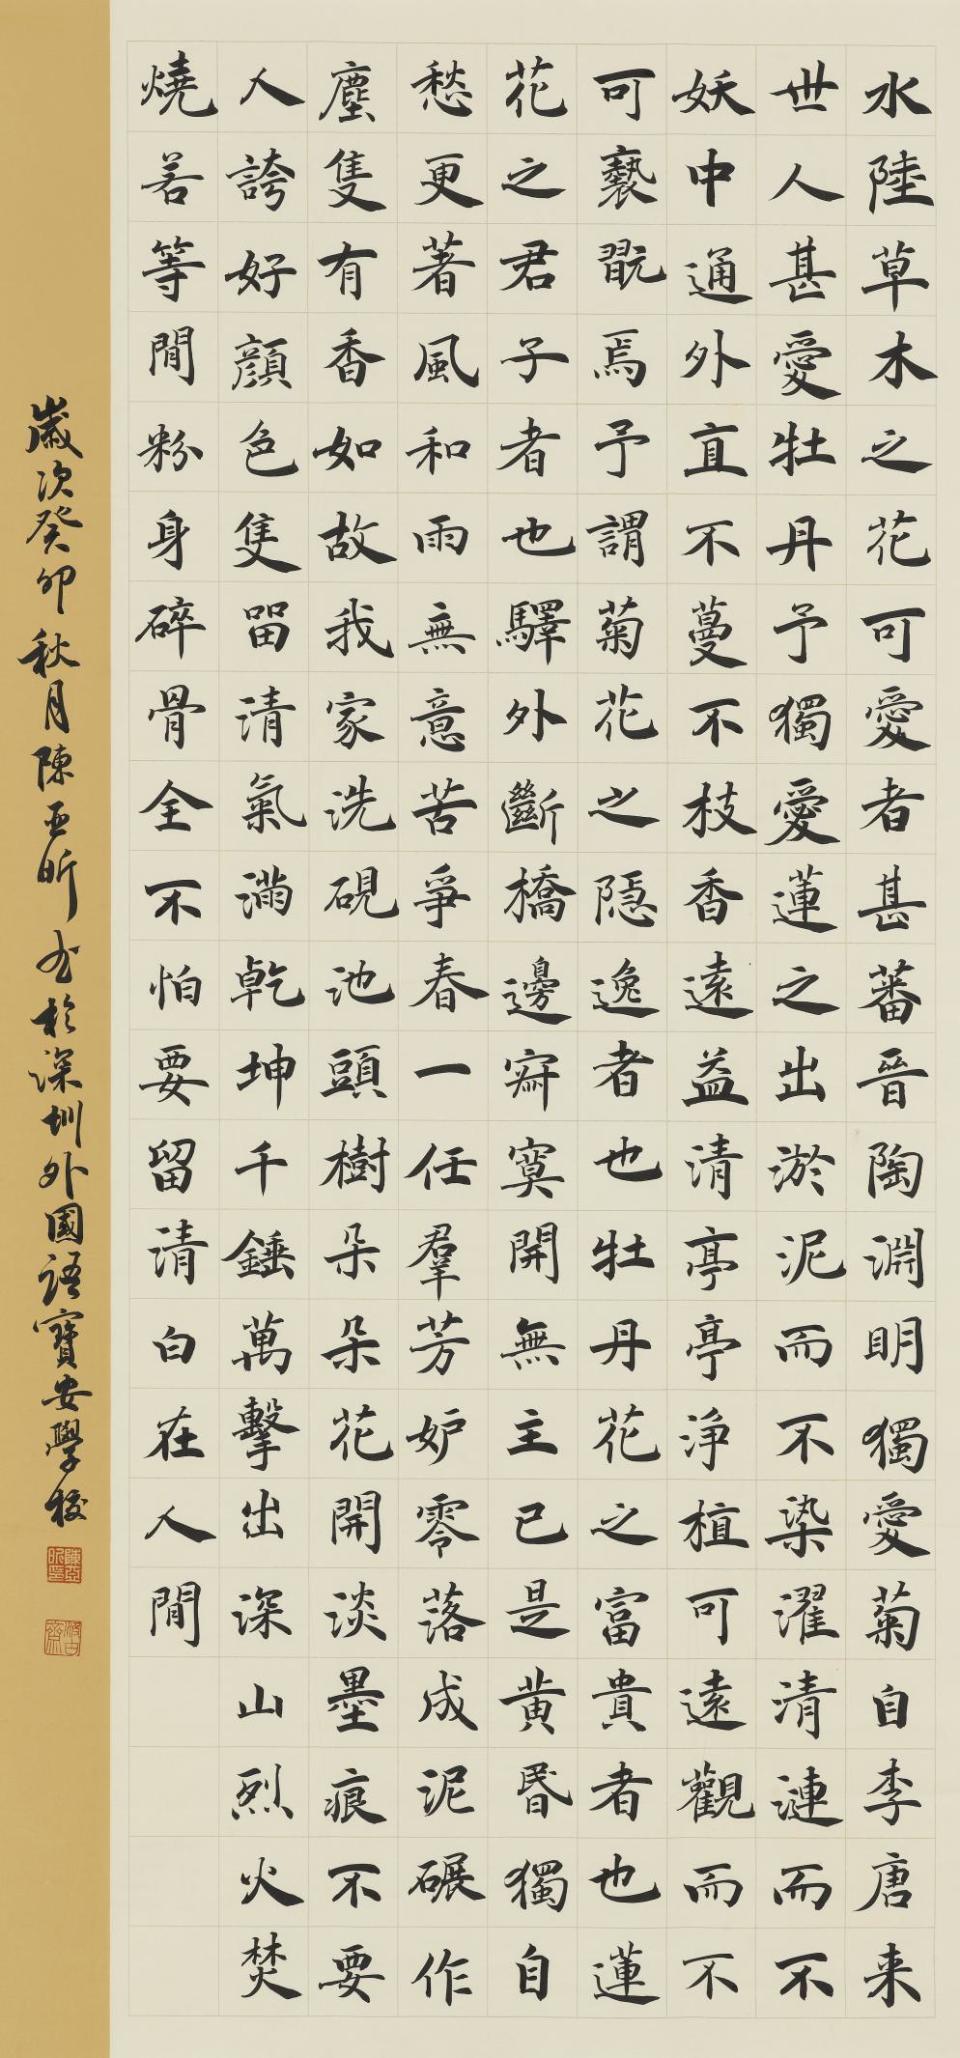 水陸草木之花可愛者甚蕃晉陶淵明獨愛菊自李唐来
世人甚愛牡丹予獨愛蓮之出淤泥而不染濯清漣而不
妖中通外直不蔓不枝香遠益清亭亭浄植可遠觀而不
可褻翫焉予謂菊花之隱逸者也牡丹花之富貴者也蓮
花之君子者也驛外斷橋邊寂寞開無主已是黄昏獨自
愁更著風和雨無意苦爭春一任羣芳妒零落成泥碾作
塵隻有香如故我家洗硯池頭樹朵朵花開淡墨痕不要
人誇好顔色隻留清氣滿乾坤千錘萬擊出深山烈火焚
燒若等閒粉身碎骨全不怕要留清白在人間
歲次癸卯秋月陳亞昕书於深圳外國語寶安學校
陳亞昕印